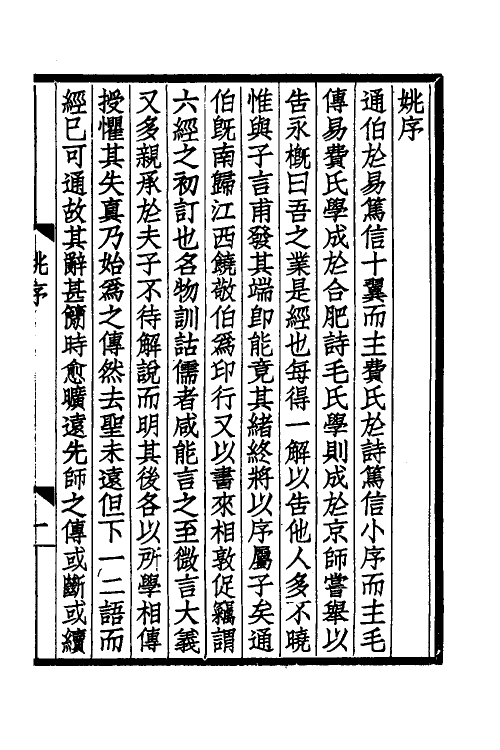 姚序
通伯於易篤信十翼而主費氏於詩篤信小序而主毛
傳易費氏學成於合肥詩毛氏學則成於京師嘗舉以
告永概曰吾之業是經也每得一解以告他人多不曉
惟與子言甫發其端卽能竟其緒終將以序屬子矣通
伯旣南歸江西饒敬伯爲印行又以書來相敦促竊謂
六經之初訂也名物訓詁儒者咸能言之至微言大義
又多親承於夫子不待解說而明其後各以所學相傳
授懼其失真乃始爲之傳然去聖未遠但下一二語而
經已可通故其辭甚簡時愈曠遠先師之傳或斷或續
姚序
一